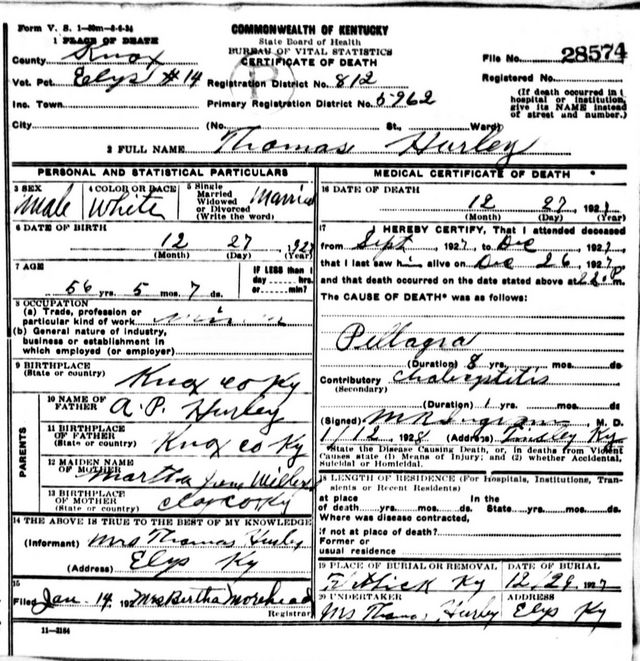 Form V. S. 1-50m-8-6-24
COMMONWEALTH OF KENTUCKY
State Board of Health
BUREAU OF VITAL STATISTICS
CERTIFICATE OF DEATH
1 PLACE OF DEATH
County Knox
File No. 28574
Vot. Pct. Elys #14 Registration District No. 812
Registered No.
Inc. Town Primary Registration District No. 5962
(If death occurred in a hospital or institution, give its NAME instead of street and number.)
City (No. St., Ward)
2 FULL NAME Thomas Hurley
PERSONAL AND STATISTICAL PARTICULARS
3 SEX Male
4 COLOR OR RACE White
5 Single Married Widowed or Divorced (Write the word) Married
6 DATE OF BIRTH
12 27 1927
(Month) (Day) (Year)
7 AGE
56 yrs. 5 mos. 7 ds.
IF LESS than 1 day hrs. or min?
8 OCCUPATION
(a) Trade, profession or particular kind of work
(b) General nature of industry, business or establishment in which employed (or employer)
9 BIRTHPLACE (State or country) Knox co Ky
PARENTS
10 NAME OF FATHER A. P. Hurley
11 BIRTHPLACE OF FATHER (State or country) Knox co Ky
12 MAIDEN NAME OF MOTHER Martha Jane
13 BIRTHPLACE OF MOTHER (State or country) Clay co Ky
14 THE ABOVE IS TRUE TO THE BEST OF MY KNOWLEDGE
(Informant) Mrs Thomas Hurley
(Address) Elys Ky
15
Filed Jan. 14, 192 Mrs Bertha Morehead
Registrar
11-3184
MEDICAL CERTIFICATE OF DEATH
16 DATE OF DEATH
12 27 192
(Month) (Day) (Year)
17 I HEREBY CERTIFY, That I attended deceased
from Sept 1927 to Dec 1927
that I last saw him alive on Dec 26, 1927
and that death occurred on the date stated above at P
The CAUSE OF DEATH* was as follows:
Pellagra
(Duration) 8 yrs. mos. ds.
Contributory
(Secondary)
(Duration) 1 yrs. mos. ds.
(Signed) M. D.
1/12 1928 (Address) Ky
*State the Disease Causing Death, or, in deaths from Violent Causes state (1) Means of Injury; and (2) whether Accidental, Suicidal or Homicidal.
18 LENGTH OF RESIDENCE (For Hospitals, Institutions, Transients or Recent Residents)
at place of death yrs. mos. ds. In the State yrs. mos. ds.
Where was disease contracted,
if not at place of death?
Former or usual residence
19 PLACE OF BURIAL OR REMOVAL Ky
DATE OF BURIAL 12/29 1927
20 UNDERTAKER Mrs Thomas Hurley
ADDRESS Elys Ky